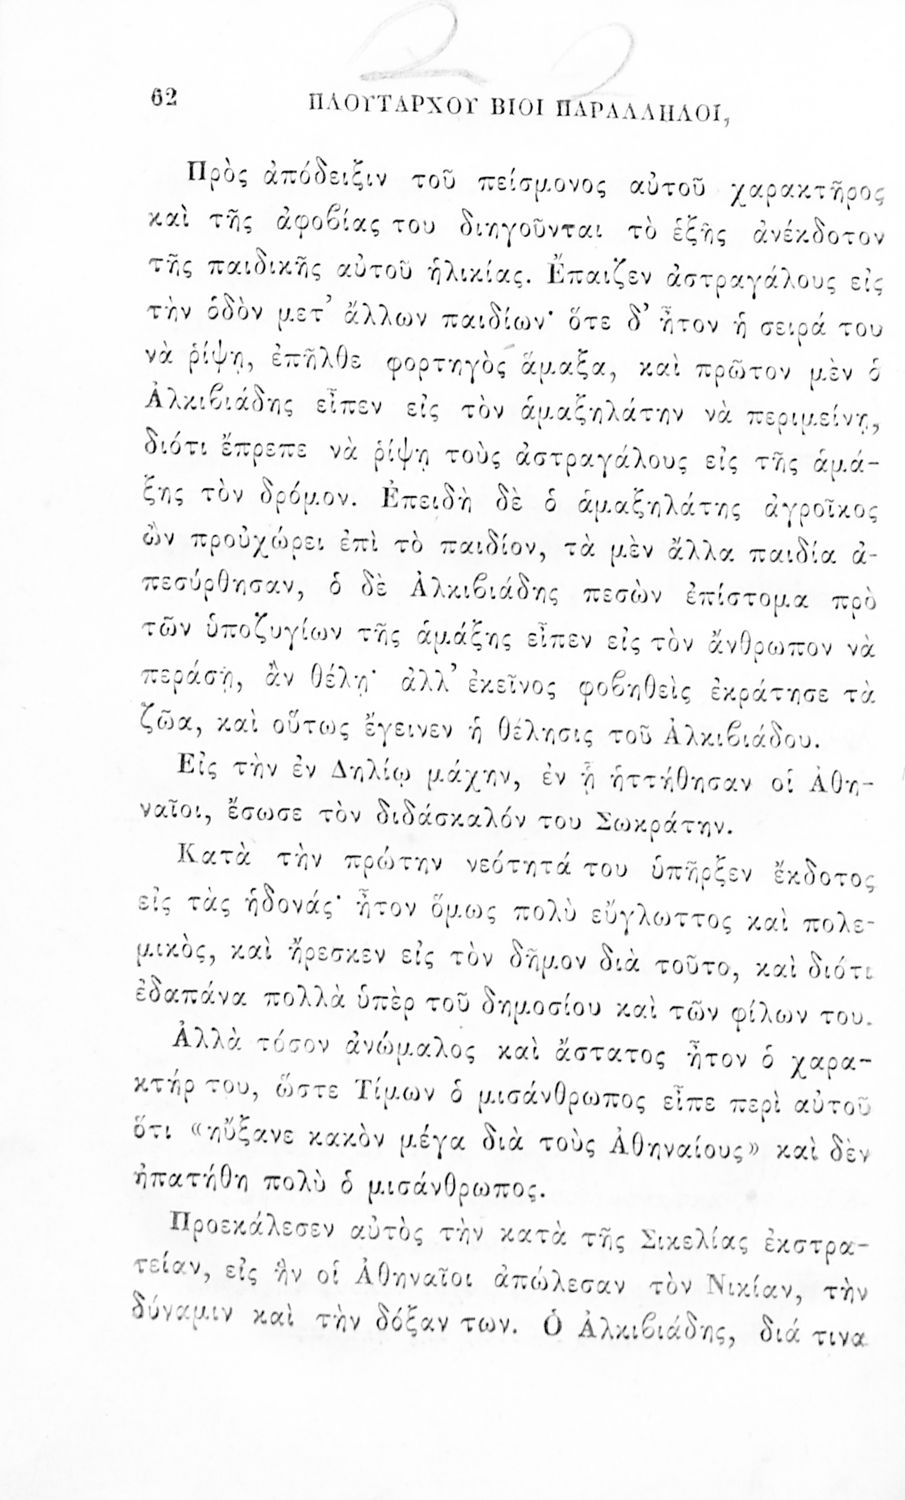 62 ΠΛΟΥΤΑΡΧΟΥ ΒΙΟΙ ΠΑΡΑΛΛΗΛΟΙ,
Πρὸς ἀπόδειξιν τοῦ πείσμονος αὐτοῦ χαρακτῆρος
καὶ τῆς ἀφοβίας του διηγοῦνται τὸ ἑξῆς ἀνέκδοτον
τῆς παιδικῆς αὐτοῦ ἡλικίας. Ἔπαιζεν ἀστραγάλους εἰς
τὴν ὁδὸν μετ’ ἄλλων παιδίων· ὅτε δ’ ἦτον ἡ σειρά του
νὰ ῥίψῃ, ἐπῆλθε φορτηγὸς ἅμαξα, καὶ πρῶτον μὲν ὁ
Ἀλκιβιάδης εἶπεν εἰς τὸν ἁμαξηλάτην νὰ περιμείνῃ,
διότι ἔπρεπε νὰ ῥίψῃ τοὺς ἀστραγάλους εἰς τῆς ἁμά-
ξης τὸν δρόμον. Ἐπειδὴ δὲ ὁ ἁμαξηλάτης ἀγροῖκος
ὢν προὐχώρει ἐπὶ τὸ παιδίον, τὰ μὲν ἄλλα παιδία ἀ-
πεσύρθησαν, ὁ δὲ Ἀλκιβιάδης πεσὼν ἐπίστομα πρὸ
τῶν ὑποζυγίων τῆς ἁμάξης εἶπεν εἰς τὸν ἄνθρωπον νὰ
περάσῃ, ἂν θέλῃ· ἀλλ’ ἐκεῖνος φοβηθεὶς ἐκράτησε τὰ
ζῶα, καὶ οὕτως ἔγεινεν ἡ θέλησις τοῦ Ἀλκιβιάδου.
Εἰς τὴν ἐν Δηλίῳ μάχην, ἐν ᾗ ἡττήθησαν οἱ Ἀθη-
ναῖοι, ἔσωσε τὸν διδάσκαλόν του Σωκράτην.
Κατὰ τὴν πρώτην νεότητά του ὑπῆρξεν ἔκδοτος
εἰς τὰς ἡδονάς· ἦτον ὅμως πολὺ εὔγλωττος καὶ πολε-
μικὸς, καὶ ἤρεσκεν εἰς τὸν δῆμον διὰ τοῦτο, καὶ διότι
ἐδαπάνα πολλὰ ὑπὲρ τοῦ δημοσίου καὶ τῶν φίλων του.
Ἀλλὰ τόσον ἀνώμαλος καὶ ἄστατος ἦτον ὁ χαρα-
κτήρ του, ὥστε Τίμων ὁ μισάνθρωπος εἶπε περὶ αὐτοῦ
ὅτι «ηὔξανε κακὸν μέγα διὰ τοὺς Ἀθηναίους» καὶ δὲν
ἠπατήθη πολὺ ὁ μισάνθρωπος.
Προεκάλεσεν αὐτὸς τὴν κατὰ τῆς Σικελίας ἐκστρα-
τείαν, εἰς ἣν οἱ Ἀθηναῖοι ἀπώλεσαν τὸν Νικίαν, τὴν
δύναμιν καὶ τὴν δόξαν των. Ὁ Ἀλκιβιάδης, διά τινα